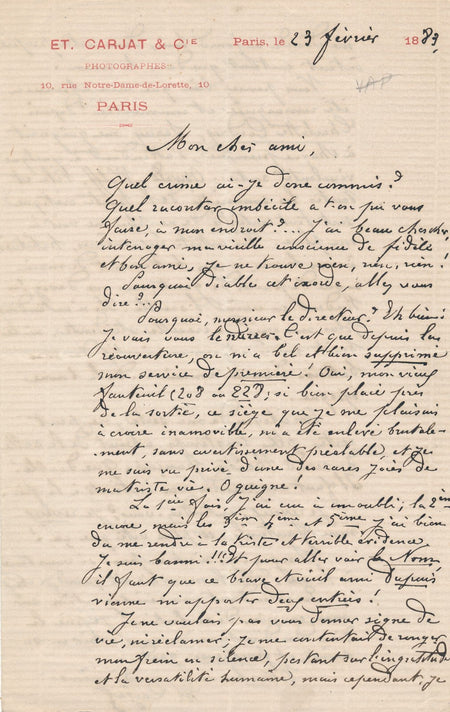 ET. CARJAT & CIE
PHOTOGRAPHES
10, rue Notre-Dame-de-Lorette, 10
PARIS
Paris, le 23 février 1883
Mon cher ami,
Quel crime ai-je donc commis?
Quel racontar imbécile a-t-on pu vous
faire, à mon endroit?... J'ai beau chercher,
interroger ma vieille conscience de fidèle
et bon ami, je ne trouve rien, rien, rien!
Pourquoi diable cet exorde, allez vous
dire?...
Pourquoi, monsieur le directeur? Eh bien!
Je vais vous le dire. C'est que depuis la
réouverture, on m'a bel et bien supprimé
mon service de première! Oui, mon vieux
fauteuil (208 ou 223) si bien placé près
de la sortie, ce siège que je me plaisais
à croire inamovible, m'a été enlevé brutale-
ment, sans avertissement préalable, et je
me suis vu privé d'une des rares joies de
ma triste vie. O guigne!
La 1ère fois, j'ai cru à un oubli; la 2ème
encore, mais les 3ème 4ème et 5ème j'ai bien
du me rendre à la triste et terrible évidence
Je suis banni!!! Et pour aller voir le Nom
il faut que ce brave et vieil ami Dupuis
vienne m'apporter deux entrées!
Je ne voulais pas vous donner signe de
vie, ni réclamer; je me contentais de ronger
mon frein en silence, pestant sur l'ingratitude
et la versatilité humaine, mais cependant, je